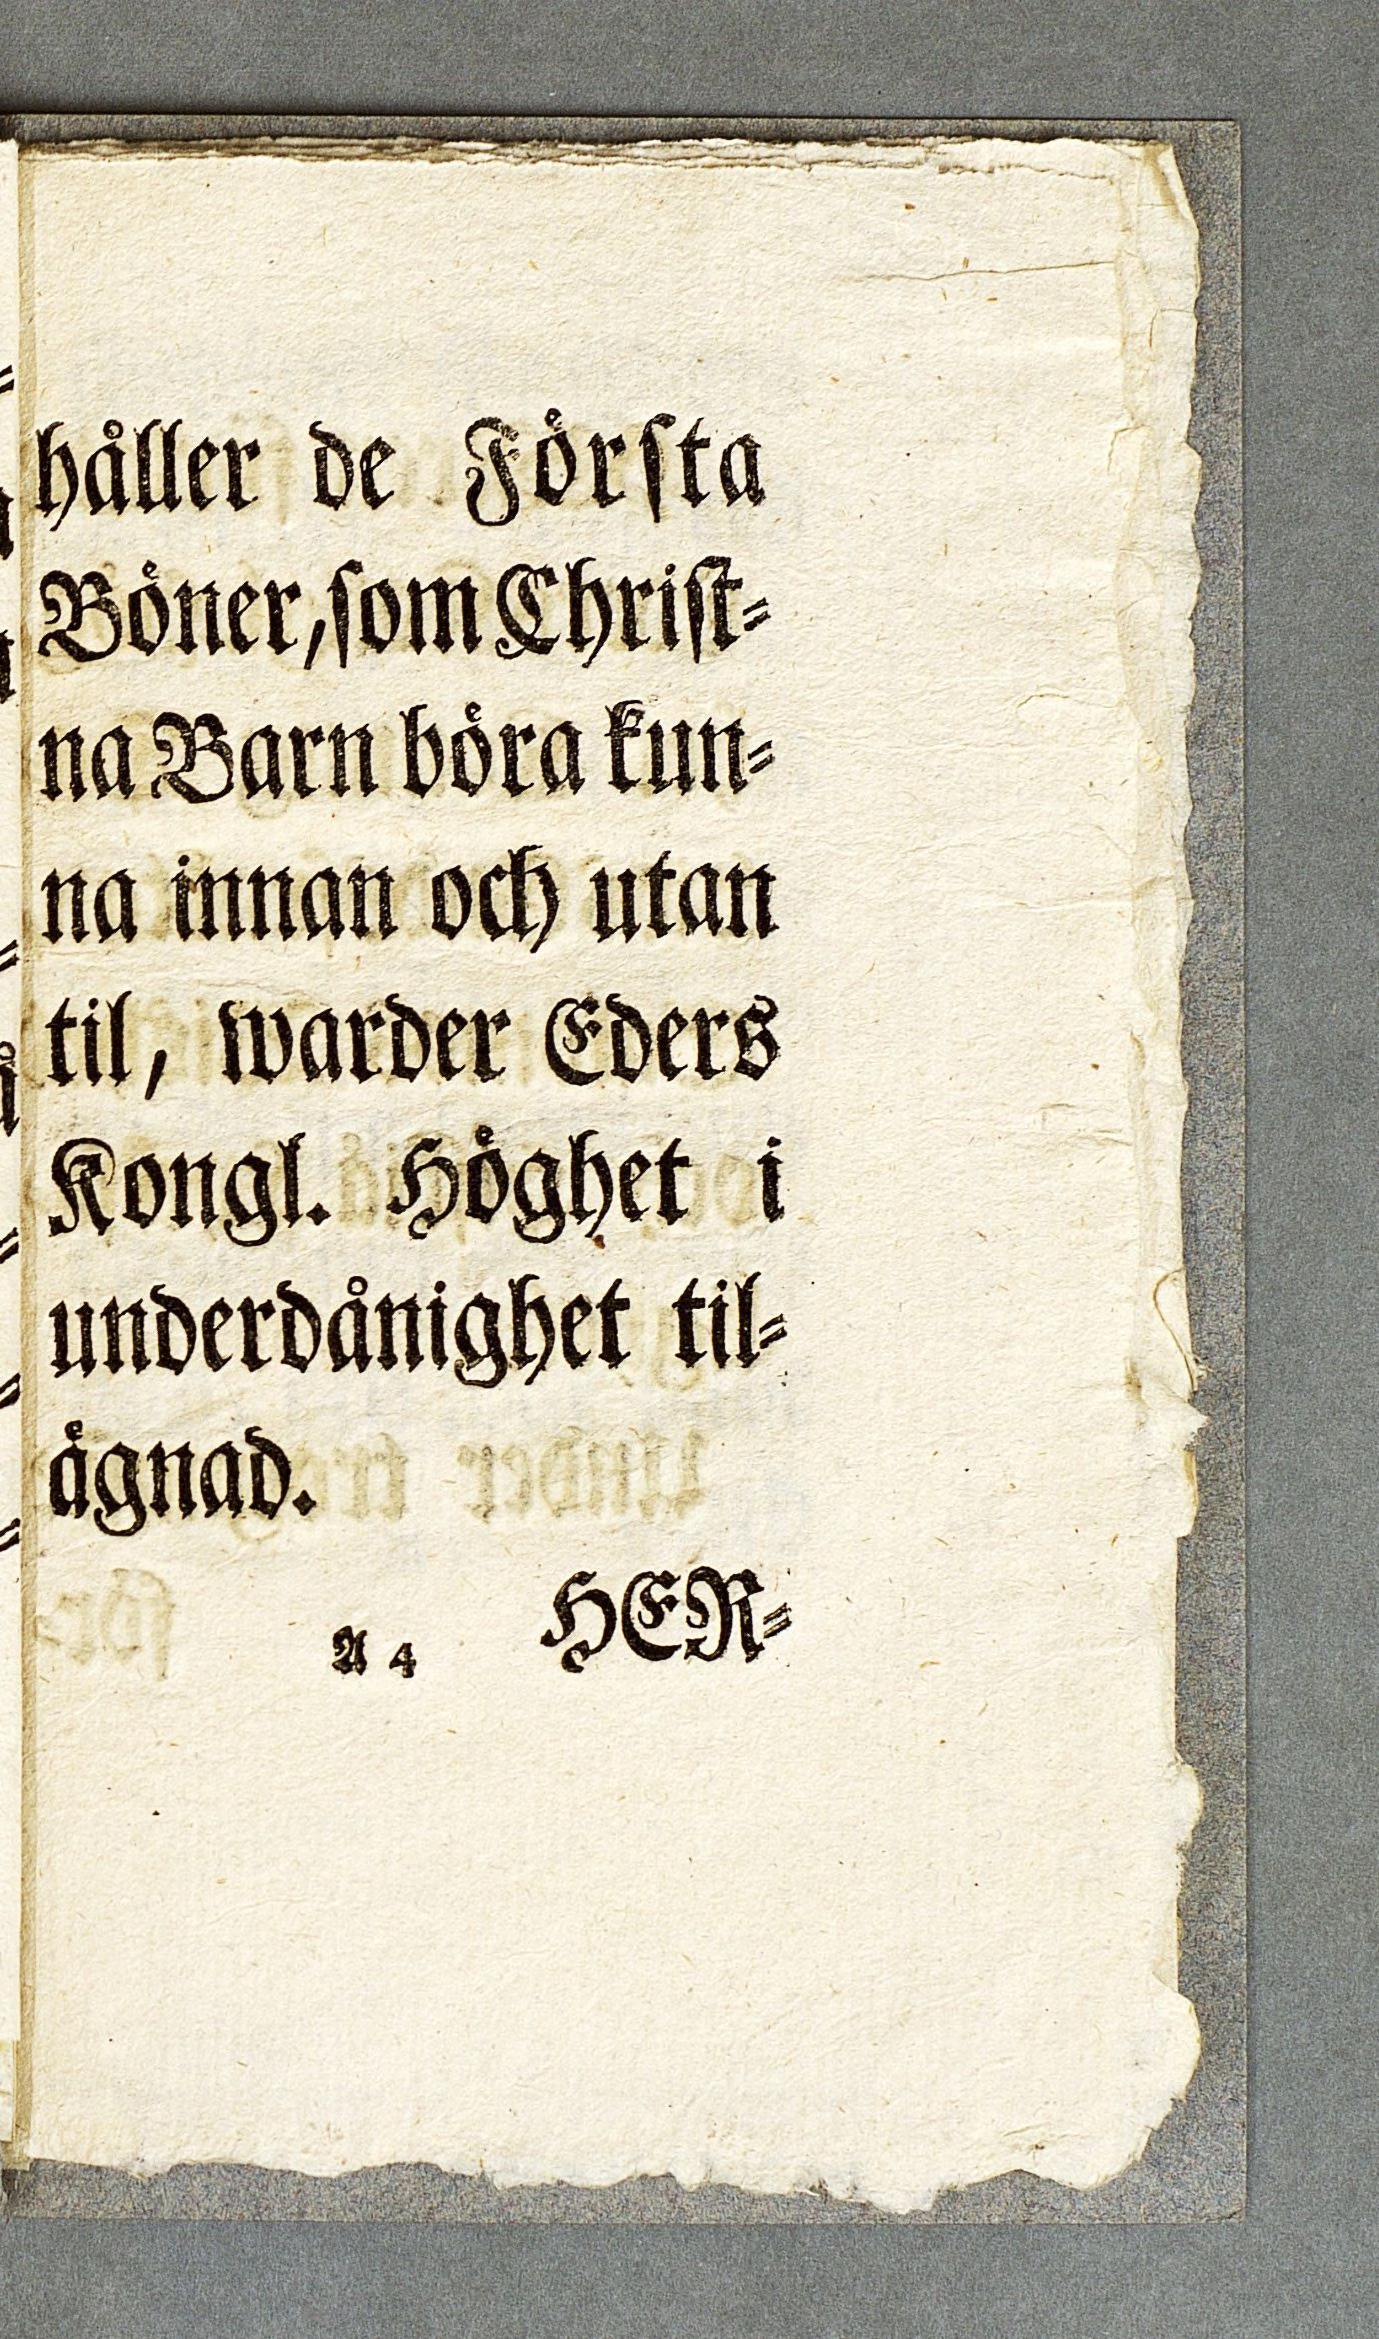 håller de Första
Böner, som Christ-
na Barn böra kun-
na innan och utan
til, warder Eders
Kongl. Höghet i
underdånighet til-
ägnad.
A 4 HER-